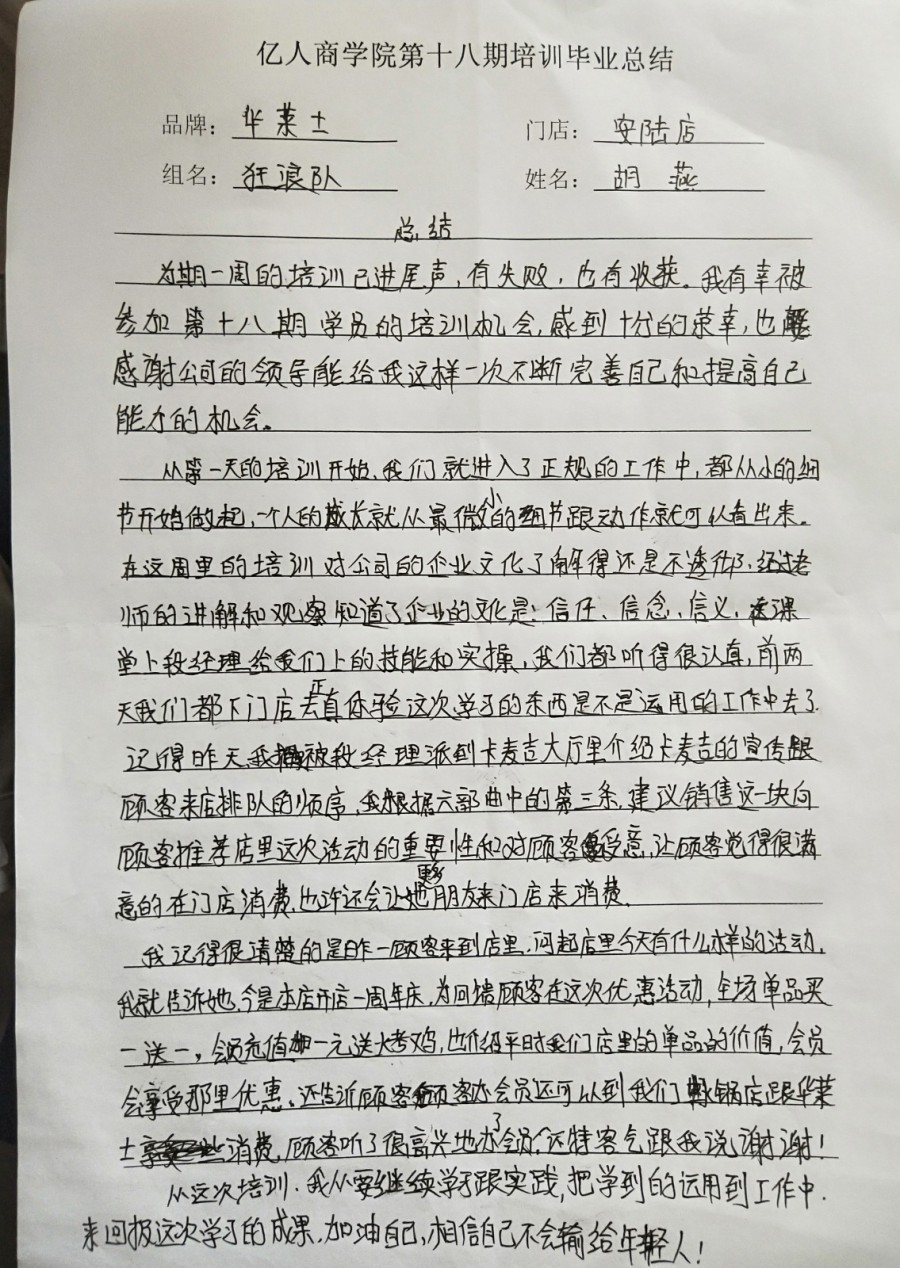 亿人商学院第十八期培训毕业总结
品牌：华莱士 门店：安陆店
组名：狂浪队 姓名：胡燕
总结
为期一周的培训已进尾声，有失败，也有收获。我有幸被
参加第十八期学员的培训机会，感到十分的荣幸，也
感谢公司的领导能给我这样一次不断完善自己和提高自己
能力的机会。
从第一天的培训开始、我们就进入了正规的工作中，都从小的细
节开始做起，一个人的成长就从最微小的细节跟动作就可以看出来。
在这周里的培训对公司的企业文化了解得还是不透彻，经过老
师的讲解和观察知道了企业的文化是：信任、信念、信义，课
堂上段经理给我们上的技能和实操，我们都听得很认真，前两
天我们都下门店去真正体验这次学习的东西是不是运用的工作中去了.
记得昨天我被段经理派到卡麦吉大厅里介绍卡麦吉的宣传跟
顾客来店排队的顺序，我根据六部曲中的第三条，建议销售这一块向
顾客推荐店里这次活动的重要性和对顾客受意，让顾客觉得很满
意的在门店消费，也许还会让她更多朋友来门店来消费.
我记得很清楚的是昨一顾客来到店里，问起店里今天有什么样的活动，
我就告诉她，今是本店开店一周年庆，为回馈顾客在这次优惠活动，全场单品买
一送一，会员充值加一元送大烤鸡，也介绍平时我们店里的单品的价值，会员
会享受那里优惠、还告诉顾客顾客办会员还可以到我们锅店跟华莱
士消费，顾客听了很高兴地办了会员，还特客气跟我说谢谢！
从这次培训，我从要继续学习跟实践，把学到的运用到工作中.
来回报这次学习的成果，加油自己，相信自己不会输给年轻人！